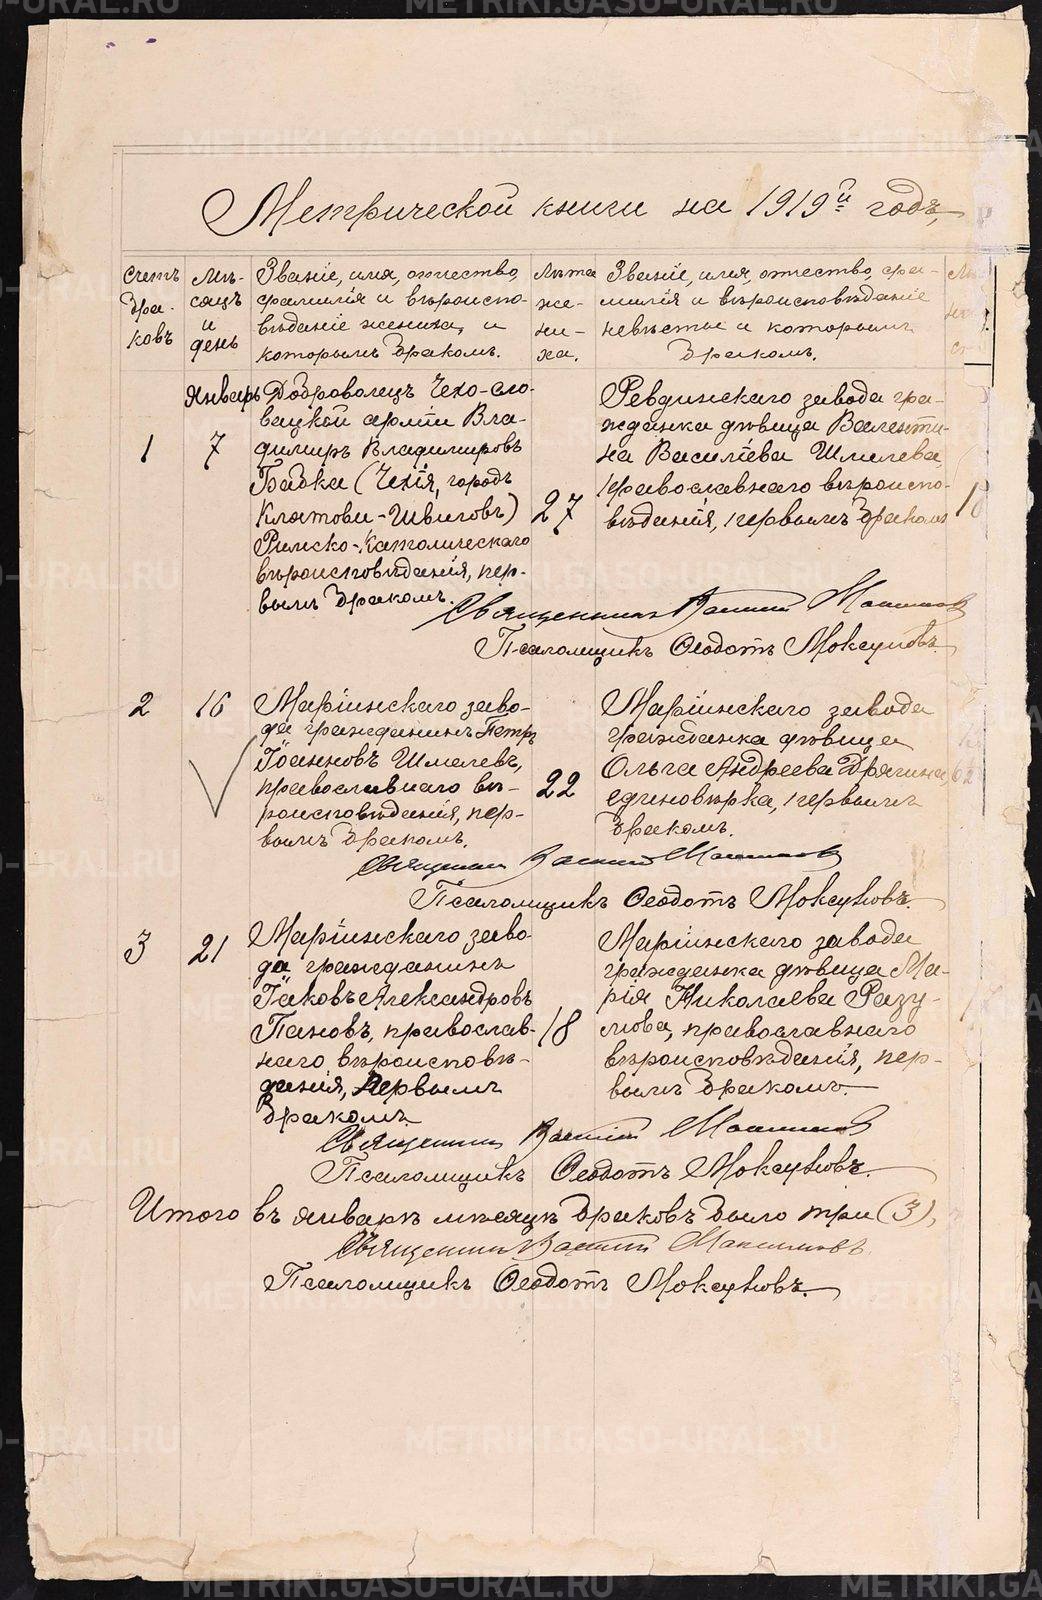 Метрической книги на 1919й годъ,
Счетъ браковъ
Мѣсяцъ и день
Званіе, имя, отчество,
фамилія и вѣроиспо-
вѣданіе жениха, и
которымъ бракомъ.
Лѣта
же-
ни-
ха.
Званіе, имя, отчество, фа-
милія и вѣроисповѣданіе
невѣсты и которымъ
бракомъ.
Январь
1
7
Доброволецъ Чехо-сло-
вацкой арміи Вла-
димиръ Владимировъ
Бабка (Чехія, городъ
Клятови-Швиговъ)
Римско-Католическаго
вѣроисповѣданія, пер-
вымъ бракомъ.
27
Ревдинскаго завода гра-
жданка дѣвица Валенти-
на Василіева Шмелева,
православнаго вѣроиспо-
вѣданія, первымъ бракомъ
Священникъ Василій Максимовъ
Псаломщикъ Ѳеодотъ Моксуновъ.
2
16
Маріинскаго заво-
да гражданинъ Петръ
Іоанновъ Шмелевъ,
православнаго вѣ-
роисповѣданія, пер-
вымъ бракомъ.
22
Маріинскаго завода
гражданка дѣвица
Ольга Андреева Дрягина,
единовѣрка, первымъ
бракомъ.
Священник Василій Максимов
Псаломщикъ Ѳеодотъ Моксуновъ.
3
21
Маріинскаго заво-
да гражданинъ
Іаковъ Александровъ
Пановъ, православ-
наго вѣроисповѣ-
данія, первымъ
бракомъ.
18
Маріинскаго завода
гражданка дѣвица Ма-
рія Николаева Разу-
мова, православнаго
вѣроисповѣданія, пер-
вымъ бракомъ.
Священник Василій Максимов
Псаломщикъ Ѳеодотъ Моксуновъ.
Итого въ январѣ мѣсяцѣ браковъ было три (3).
Священник Василій Максимовъ.
Псаломщикъ Ѳеодотъ Моксуновъ.
METRIKI.GASO-URAL.RU